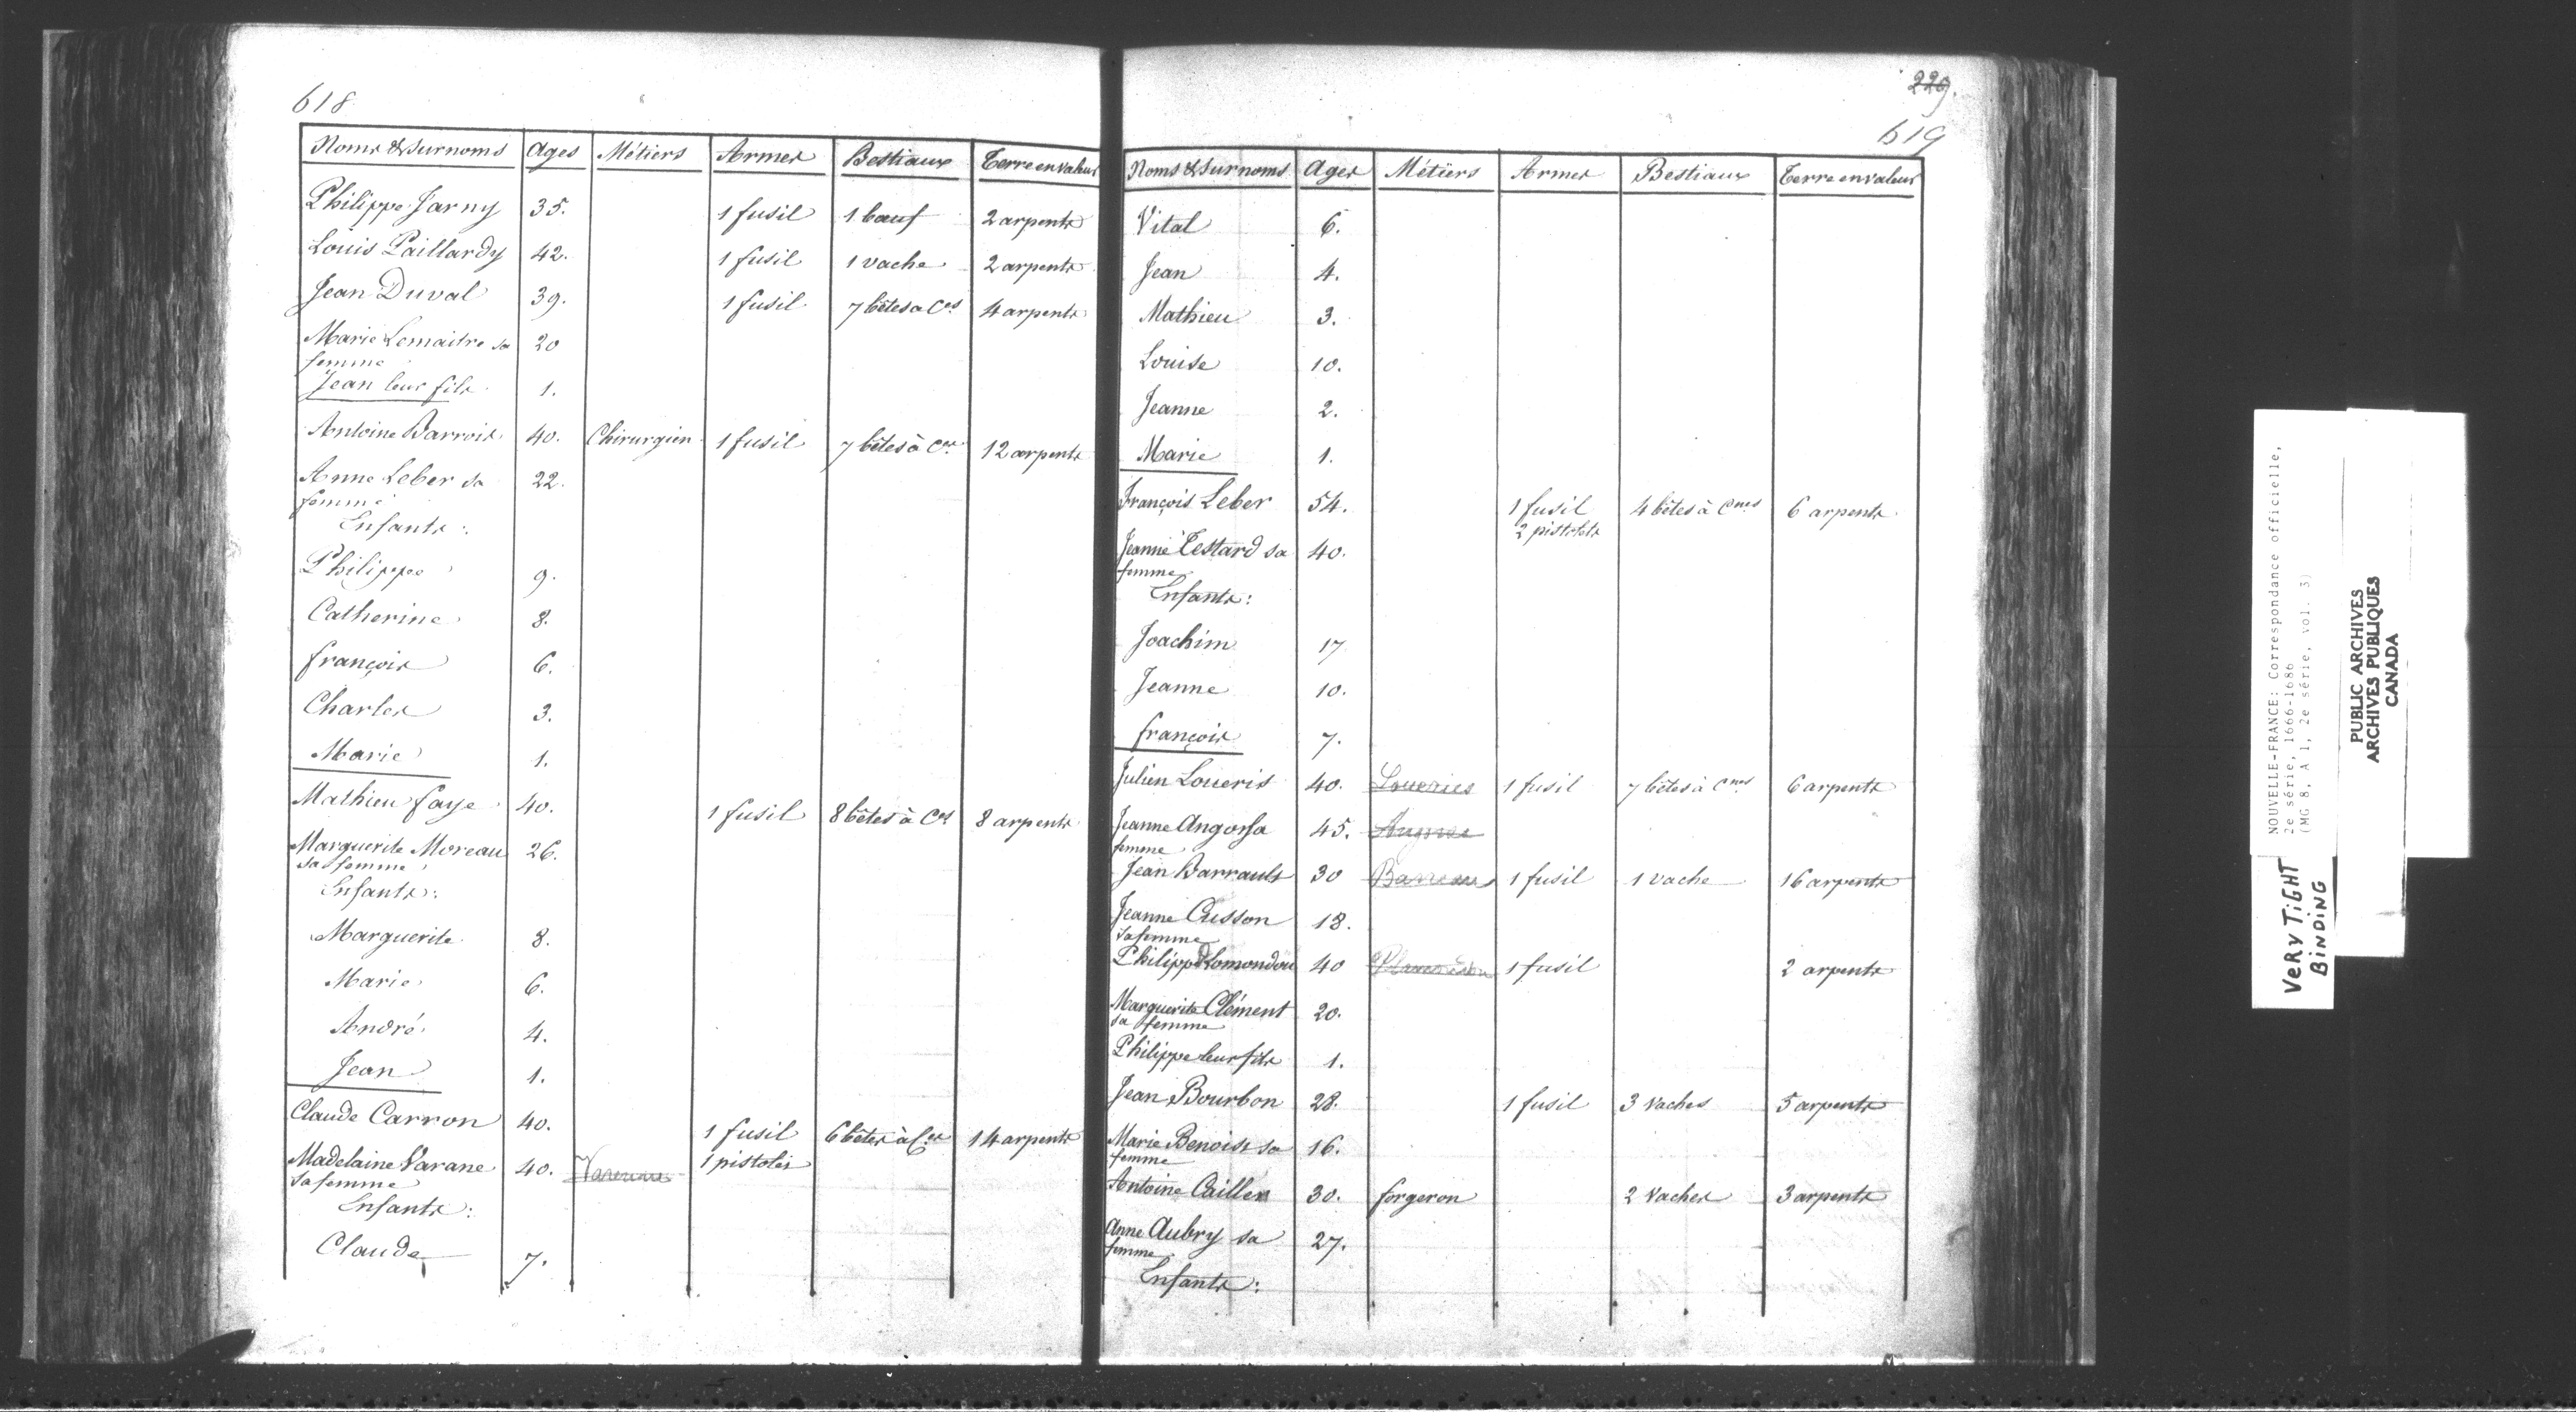 618
Noms & surnoms Ages Métiers Armes Bestiaux Terre en valeur
Philippe Jarny 35. 1 fusil 1 bœuf 2 arpents
Louis Paillardy 42. 1 fusil 1 vache 2 arpents
Jean Duval 39. 1 fusil 7 bêtes a Ces 4 arpents
Marie Lemaitre sa 20
femme
Jean leur fils 1.
Antoine Barrois 40. Chirurgien 1 fusil 7 bêtes à Ces 12 arpents
Anne Leber sa 22.
femme
Enfants :
Philippe 9.
Catherine 8.
François 6.
Charles 3.
Marie 1.
Mathieu faye 40. 1 fusil 8 bêtes à Ces 8 arpents
Marguerite Moreau 26.
sa femme
Enfants :
Marguerite 8.
Marie 6.
André 4.
Jean 1.
Claude Carron 40. 1 fusil 6 bêtes à Ces 14 arpents
Madelaine Varane 40. 1 pistolet
sa femme
Enfants :
Claude 7.
229.
619
Noms & surnoms Ages Métiers Armes Bestiaux Terre en valeur
Vital 6.
Jean 4.
Mathieu 3.
Louise 10.
Jeanne 2.
Marie 1.
François Leber 54. 1 fusil 4 bêtes à Cnes 6 arpents
2 pistolets
Jeanne Testard sa 40.
femme
Enfants :
Joachim 17
Jeanne 10.
françois 7.
Julien Loueris 40. Loueries 1 fusil 7 bêtes à Cnes 6 arpents
Jeanne Angossa 45.
femme
Jean Barrault 30 Barreau 1 fusil 1 vache 16 arpents
Jeanne Cusson 18.
sa femme
Philippe Lomondou 40 1 fusil 2 arpents
Marguerite Clément 20.
sa femme
Philippe leur fils 1.
Jean Bourbon 28. 1 fusil 3 vaches 5 arpents
Marie Benoist sa 16.
femme
Antoine Cailler 30. forgeron 2 vaches 3 arpents
Anne Aubry sa 27.
femme
Enfants :
NOUVELLE-FRANCE: Correspondance officielle,
2e série, 1666-1686
(MG 8, A 1, 2e série, vol. 3)
VERY TIGHT
BINDING
PUBLIC ARCHIVES
ARCHIVES PUBLIQUES
CANADA